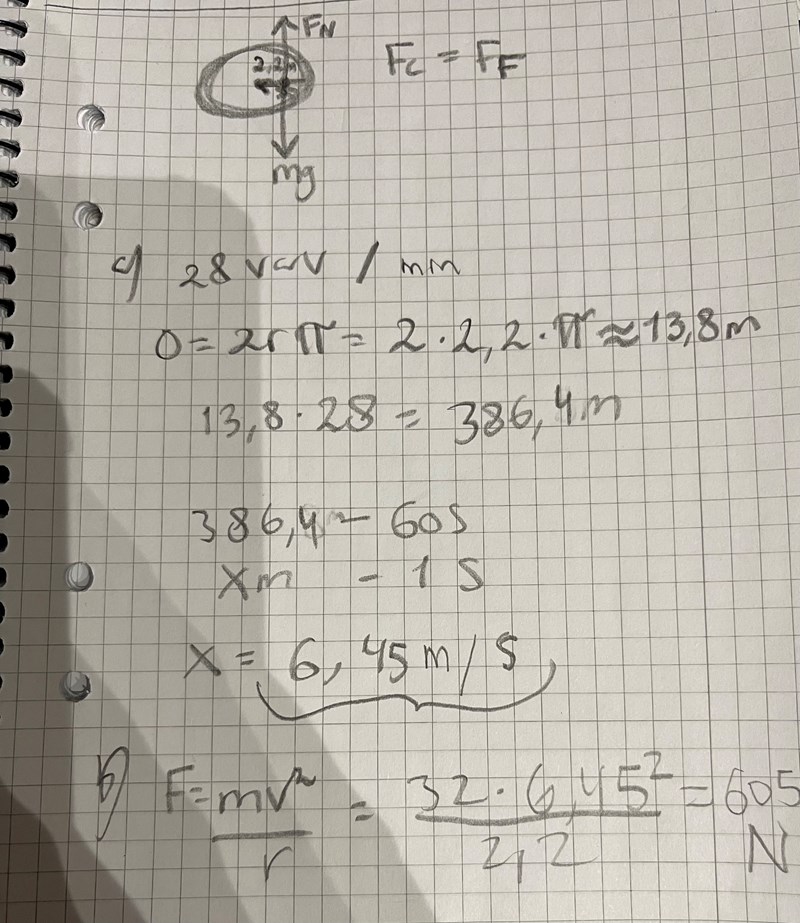 FN
Fc = FF
2,2
mg
a) 28 varv / min
O = 2rπ = 2 · 2,2 · π ≈ 13,8 m
13,8 · 28 = 386,4 m
386,4 – 60 s
x m – 1 s
x = 6,45 m/s
b) F = mv² / r = 32 · 6,45² / 2,2 = 605 N